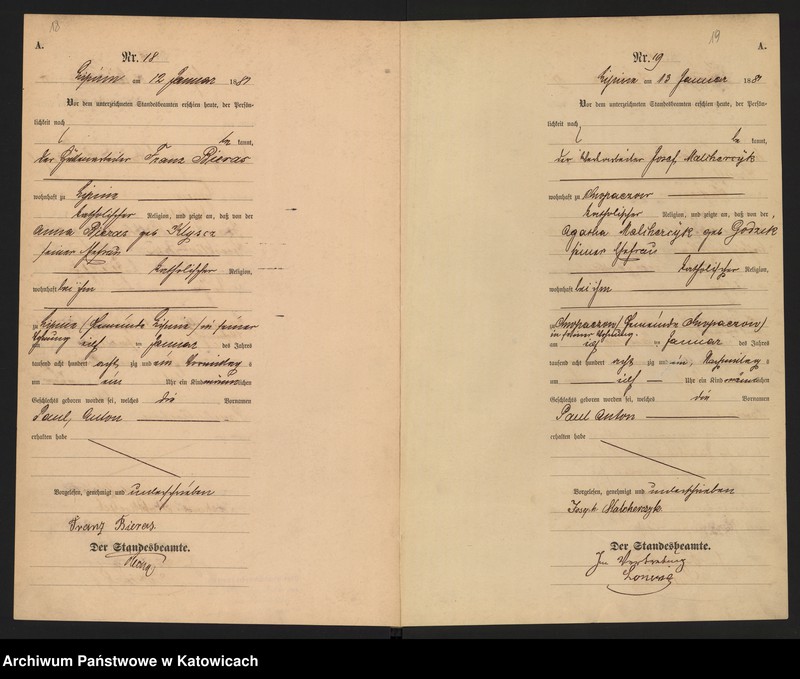 18
A.
Nr. 18
Lipine am 12 Januar 1881
Vor dem unterzeichneten Standesbeamten erschien heute, der Persön-
lichkeit nach
be kannt,
der Hüttenarbeiter Franz Bieras
wohnhaft zu Lipine
katholischer Religion, und zeigte an, daß von der
Anna Bieras geb Klyscz
seiner Ehefrau
katholischer Religion,
wohnhaft bei ihm
zu Lipine (Gemeinde Lipine) in seiner
Wohnung am eilf ten Januar des Jahres
tausend acht hundert acht zig und ein Vormittag s
um ein Uhr ein Kind männlichen
Geschlechts geboren worden sei, welches die Vornamen
Paul, Anton
erhalten habe
Vorgelesen, genehmigt und unterschrieben
Franz Bieras.
Der Standesbeamte.
19
A.
Nr. 19
Lipine am 13 Januar 1881
Vor dem unterzeichneten Standesbeamten erschien heute, der Persön-
lichkeit nach
be kannt,
der Josef Malcharcÿk
wohnhaft zu Chropaczow
katholischer Religion, und zeigte an, daß von der
Agatha Malcharcÿk geb Godzik
seiner Ehefrau
katholischer Religion,
wohnhaft bei ihm
zu Chropaczow (Gemeinde Chropaczow)
in seiner Wohnung
am eilf ten Januar des Jahres
tausend acht hundert acht zig und ein, Nachmittag s
um eilf Uhr ein Kind männlichen
Geschlechts geboren worden sei, welches die Vornamen
Paul Anton
erhalten habe
Vorgelesen, genehmigt und unterschrieben
Joseph Malcherczyk
Der Standesbeamte.
In Vertretung
Archiwum Państwowe w Katowicach